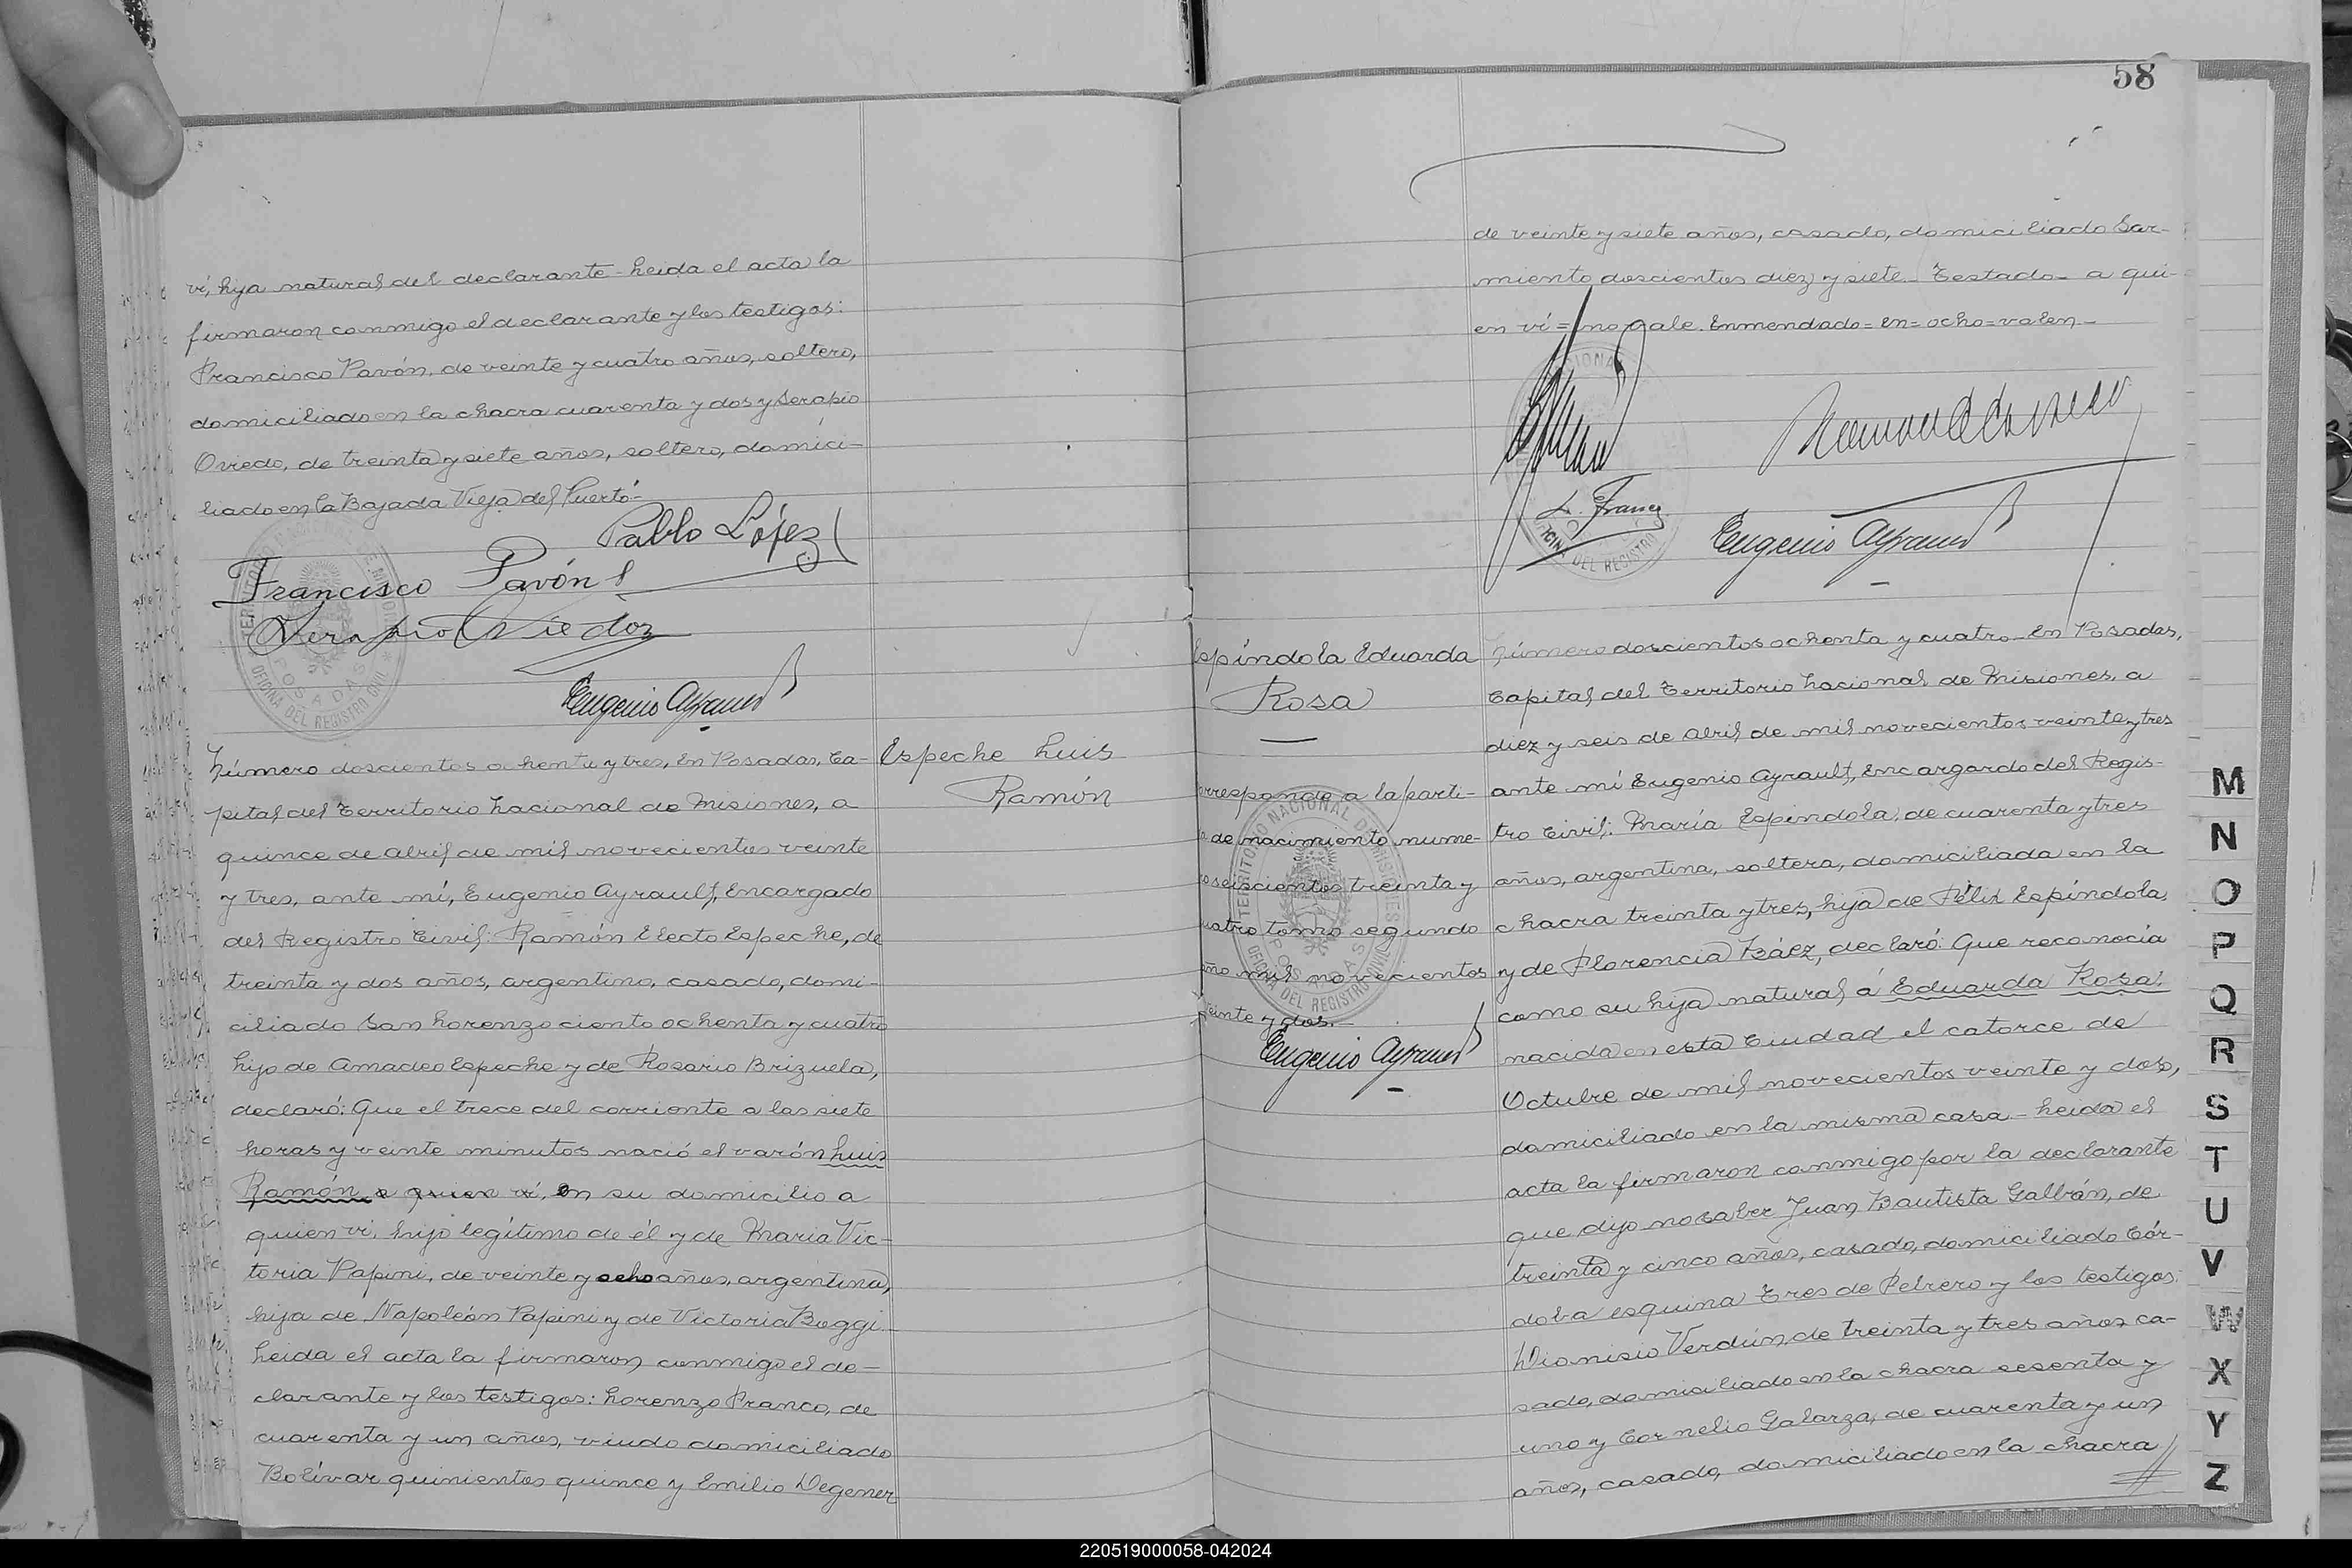 vi, hija natural del declarante - Leida el acta la
firmaron conmigo el declarante y los testigos:
Francisco Pavón, de veinte y cuatro años, soltero,
domiciliado en la chacra cuarenta y dos y Serapio
Oviedo, de treinta y siete años, soltero, domici-
liado en la Bajada Vieja del Puerto-
Pablo López
Francisco Pavón
Eugenio Ayrault
Número doscientos ochenta y tres, En Posadas, Ca-
pital del Territorio Nacional de Misiones, a
quince de Abril de mil novecientos veinte
y tres, ante mí, Eugenio Ayrault, Encargado
del Registro Civil: Ramón Electo Espeche, de
treinta y dos años, argentino, casado, domi-
ciliado San Lorenzo ciento ochenta y cuatro
hijo de Amadeo Espeche y de Rosario Brizuela,
declaró: Que el trece del corriente a las siete
horas y veinte minutos nació el varón Luis
Ramón a quien vi, en su domicilio a
quien vi, hijo legítimo de él y de Maria Vic-
toria Papini, de veinte y ocho años, argentina,
hija de Napoleón Papini y de Victoria Boggi.
Leida el acta la firmaron conmigo el de-
clarante y los testigos: Lorenzo Franco, de
cuarenta y un años, viudo domiciliado
Bolívar quinientos quince y Emilio Degener
Espeche Luis
Ramón
58
de veinte y siete años, casado, domiciliado Sar-
miento doscientos diez y siete - Testado - a qui-
en vi = no vale. Enmendado = en = ocho = valen -
L. Franco
Eugenio Ayrault
Espíndola Eduarda
Rosa
orresponde a la parti-
de nacimiento nume-
o seiscientos treinta y
uatro tomo segundo
año mil novecientos
veinte y dos.-
Eugenio Ayrault
Número doscientos ochenta y cuatro - En Posadas,
Capital del Territorio Nacional de Misiones, a
diez y seis de Abril de mil novecientos veinte y tres
ante mí Eugenio Ayrault, Encargado del Regis-
tro Civil: María Espíndola, de cuarenta y tres
años, argentina, soltera, domiciliada en la
chacra treinta y tres, hija de Félix Espíndola
y de Florencia Báez, declaró: Que reconocía
como su hija natural á Eduarda Rosa,
nacida en esta Ciudad el catorce de
Octubre de mil novecientos veinte y dos,
domiciliado en la misma casa - Leida el
acta la firmaron conmigo por la declarante
que dijo no saber Juan Bautista Galbán, de
treinta y cinco años, casado, domiciliado Cór-
doba esquina Tres de Febrero y los testigos:
Dionisio Verdún, de treinta y tres años ca-
sado, domiciliado en la chacra sesenta y
uno y Cornelio Galarza, de cuarenta y un
años, casado, domiciliado en la chacra
M
N
O
P
Q
R
S
T
U
V
W
X
Y
Z
220519000058-042024